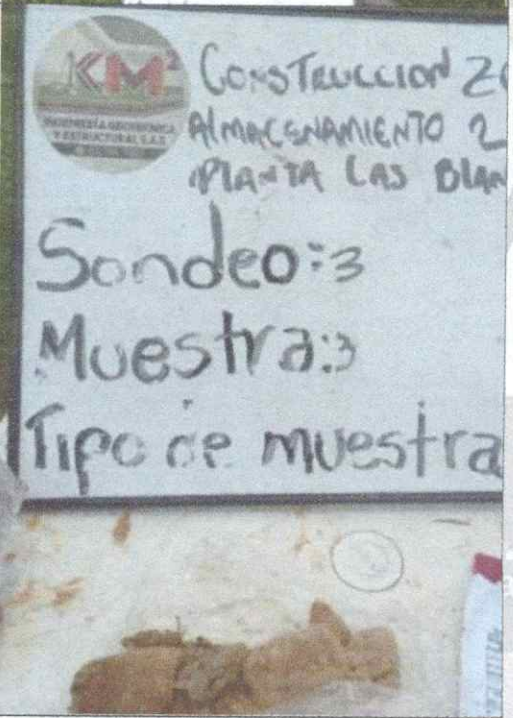 KM²
INGENIERÍA GEOTÉCNICA
Y ESTRUCTURAL S.A.S
CONSTRUCCION
ALMACENAMIENTO 2
PLANTA LAS BLAN
Sondeo:3
Muestra:3
Tipo de muestra